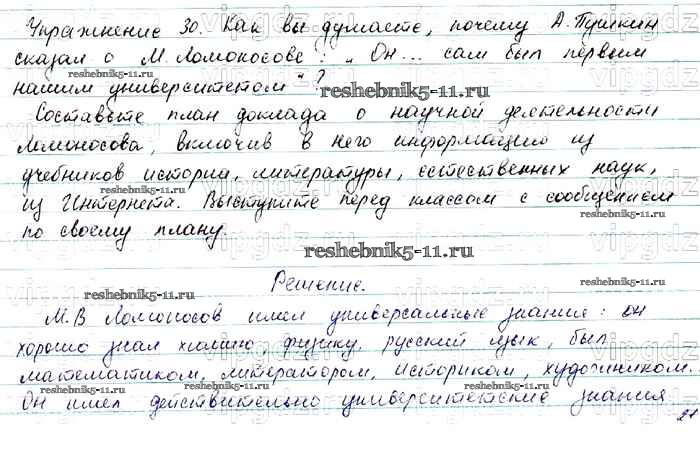 Упражнение 30. Как вы думаете, почему А. Пушкин
сказал о М. Ломоносове: „Он... сам был первым
reshebnik5-11.ru reshebnik5-11.ru
нашим университетом"?
reshebnik5-11.ru
Составьте план доклада о научной деятельности
Ломоносова, включив в него информацию из
учебников истории, литературы, естественных наук,
reshebnik5-11.ru reshebnik5-11.ru
из Интернета. Выступите перед классом с сообщением
по своему плану.
reshebnik5-11.ru
Решение.
reshebnik5-11.ru reshebnik5-11.ru
М.В Ломоносов имел универсальные знания: он
хорошо знал химию, физику, русский язык, был
математиком, литератором, историком, художником.
reshebnik5-11.ru reshebnik5-11.ru
Он имел действительно университетские знания
21